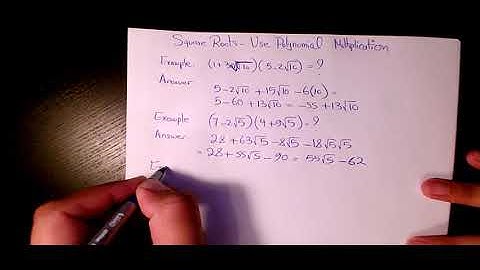 Square Roots - Use Polynomial Multiplication
Example: (1+3√10)(5-2√10) = ?
Answer
5-2√10 +15√10 -6(10) =
5-60+13√10 = -55+13√10
Example (7-2√5)(4+9√5) = ?
Answer 28+63√5-8√5-18√5√5
= 28+55√5-90 = 55√5-62